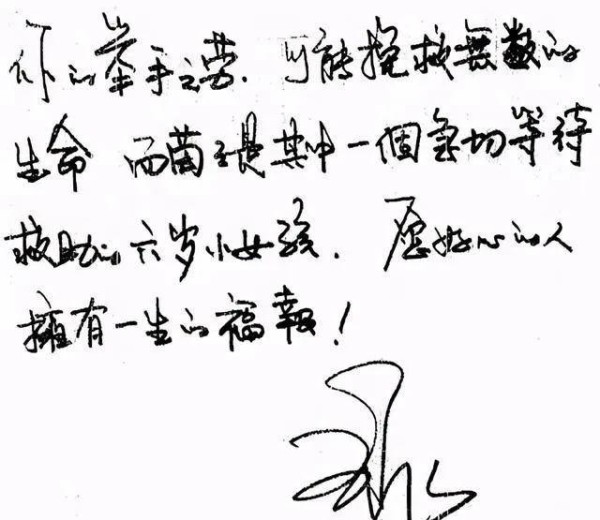 你的举手之劳.可能挽救無数的
生命 而茵茵是其中一個急切等待
救助的六岁小女孩. 愿好心的人
擁有一生的福報!